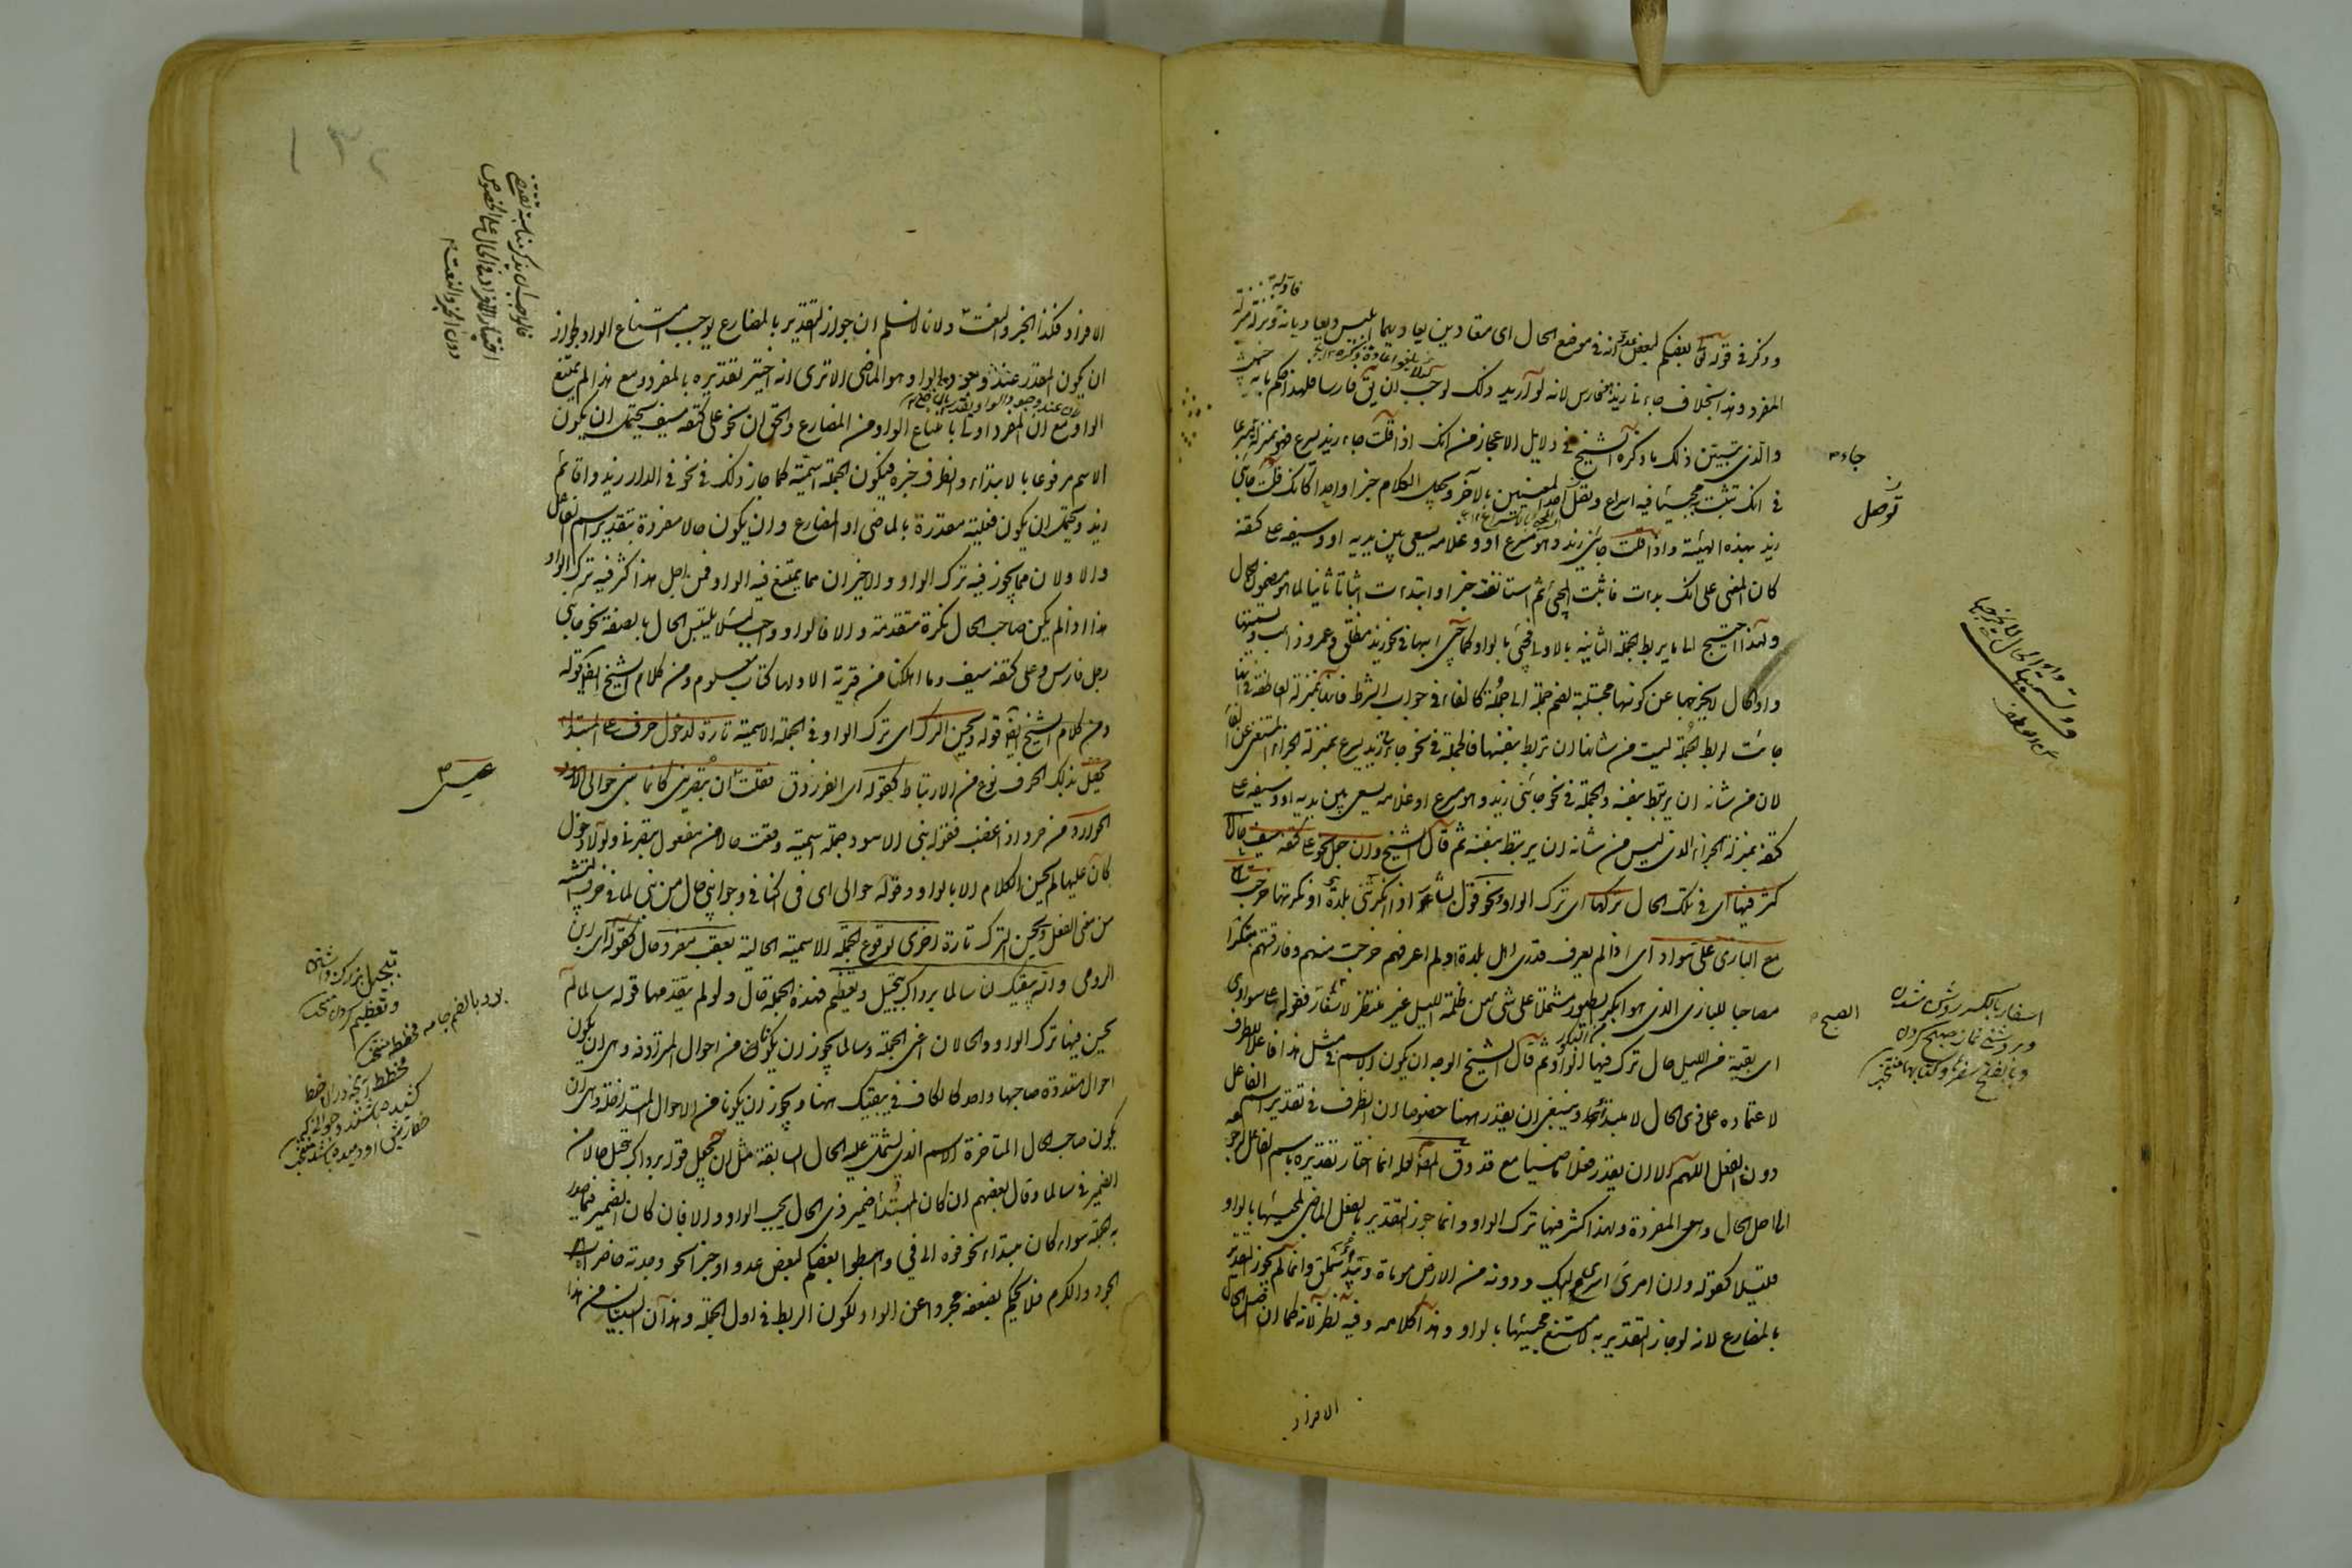 وذكر في قوله تعالى بعضكم لبعض عدو انه في موضع الحال اى متعادين يعاديهما ابليس ويعاديانه ونزله منزلة
المفرد وهذا بخلاف جاءني زيد هو فارس لانه لو اريد ذلك لوجب ان يق فارسا فلهذا حكم بانه خبيث
والذى يبين ذلك ما ذكره الشيخ في دلايل الاعجاز من انك اذا قلت جاء زيد يسرع فهو بمنزلة
في انك تثبت مجيئا فيه اسراع وتصل احد المعنيين بالآخر وتجعل الكلام خبرا واحدا كانك قلت جاءني
زيد بهذه الهيئة واذا قلت جاءني زيد وهو مسرع او وغلامه يسعى بين يديه او وسيفه على كتفه
كان المعنى على انك بدات فاثبت المجئ ثم استانفت خبرا وابتدات اثباتا ثانيا لما هو مضمون الحال
ولهذا احتيج الى ما يربط الجملة الثانية بالاولى فجئ بالواو كما جئ بها في نحو زيد منطلق وعمرو ذاهب وتسميتها
واو الحال لا يخرجها عن كونها مجتلبة لضم جملة الى جملة كالفاء في جواب الشرط فانها بمنزلة العاطفة في انها
جاءت لربط جملة ليست من شانها ان تربط بنفسها فالجملة في نحو جاءني زيد يسرع بمنزلة الجزاء المستغنى عن الفاء
لان من شانه ان يرتبط بنفسه والجملة في نحو جاءني زيد وهو يسرع او غلامه يسعى بين يديه او وسيفه على
كتفه بمنزلة الجزاء الذى ليس من شانه ان يرتبط بنفسه ثم قال الشيخ وان جعل نحو على كتفه سيف حالا
كثر فيها اى في تلك الحال تركها اى ترك الواو نحو قول بشار اذا انكرتني بلدة او نكرتها خرجت
مع البازى على سواد اى اذا لم يعرف قدرى اهل بلدة او لم اعرفهم خرجت منهم وفارقتهم مبتكرا
مصاحبا للبازى الذى هو ابكر الطيور مشتملا على شئ من ظلمة الليل غير منتظر لاسفار فقوله على سواد اى
اى بقية من الليل حال ترك فيها الواو ثم قال الشيخ الوجه ان يكون الاسم في مثل هذا فاعلا للظرف
لاعتماده على ذى الحال لا مبتدا وينبغي ان يقدر ههنا خصوصا ان الظرف في تقدير اسم الفاعل
دون الفعل اللهم الا ان يقدر فعلا ماضيا مع قد وق المص لعله انما اختار تقديره باسم الفاعل لرجوعه
الى اصل الحال وهى المفردة ولهذا كثر فيها ترك الواو وانما جوز التقدير بالفعل الماضى لمجيئها بالواو
قليلا كقوله وان امرئ اسرى اليك ودونه من الارض موماة وبيداء سملق وانما لم يجوز التقدير
بالمضارع لانه لو جاز التقدير به لامتنع مجيئها بالواو وهذا كلامه وفيه نظر لانه كما ان اصل الحال
الافراد
جاء
توصل
وتسميتها واو الحال لا يخرجها
عن العطف
الصبح
اسفار بالكسر روشن شدن
وبروشني نماز صبح كردن
وبالفتح سفرها وكتابها منتخب
الافراد فكذا الخبر والنعت ولانا لا نسلم ان جواز التقدير بالمضارع يوجب امتناع الواو لجواز
ان يكون المقدر عند وجود الواو هو الماضى الا ترى انه اختير تقديره بالمفرد ومع هذا لم يمتنع
الواو مع ان المفرد اولى بامتناع الواو من المضارع والحق ان نحو على كتفه سيف يحتمل ان يكون
الاسم مرفوعا بالابتداء والظرف خبره فيكون الجملة اسمية كما جاز ذلك في نحو في الدار زيد واقائم
زيد ويحتمل ان يكون فعلية مقدرة بالماضى او المضارع وان يكون حالا مفردة بتقدير اسم الفاعل
والاولان مما يجوز فيه ترك الواو والاخيران مما يمتنع فيه الواو فمن اجل هذا كثر فيه ترك الواو
هذا اذا لم يكن صاحب الحال نكرة متقدمة والا فالواو واجب لئلا يلتبس الحال بالصفة نحو جاءني
رجل فارس وعلى كتفه سيف وما اهلكنا من قرية الا ولها كتاب معلوم ومن كلام الشيخ ايضا قوله
ومن كلام الشيخ ايضا قوله ويحسن الترك اى ترك الواو في الجملة الاسمية تارة لدخول حرف على المبتدا
يحصل بذلك الحرف نوع من الارتباط كقوله اى الفرزدق فقلت عسى ان تبصريني كانما بنى حوالى الاسود
الحوارد من حرد اذا غضب فقوله بنى الاسود جملة اسمية وقعت حالا من مفعول تبصريني ولولا دخول
كان عليها لم يحسن الكلام الا بالواو وقوله حوالى اى في اكنافي وجوانبي حال من بنى لما في حرف التشبيه
من معنى الفعل ويحسن الترك تارة اخرى لوقوع الجملة الاسمية الحالية بعقب مفرد حال كقوله اى ابن
الرومى والله يبقيك لنا سالما برداك تبجيل وتعظيم فهذه الجملة حال ولو لم يتقدمها قوله سالما لم
يحسن فيها ترك الواو والحالان اعنى الجملة وسالما يجوز ان يكونا من احوال المترادفة وهى ان يكون
احوال متعددة صاحبها واحد كالكاف في يبقيك ههنا ويجوز ان يكونا من الاحوال المتداخلة وهى ان
يكون صاحب الحال المتاخرة الاسم الذى يشتمل عليه الحال السابقة مثل ان يجعل قوله برداك تبجيل حالا من
الضمير في سالما وقال بعضهم ان كان المبتدا ضمير ذى الحال يجب الواو والا فان كان الضمير فيما صدر
به الجملة سواء كان مبتداء نحو فوه الى في واهبطوا بعضكم لبعض عدو او خبرا نحو وجدته حاضراه
الجود والكرم فلا يحكم بضعفه مجردا عن الواو لكون الربط في اول الجملة وهذا ان البيتان من هذا
عسى
تبجيل بزرك داشتن
وتعظيم كردن منتخب
برد بالضم جامه مخطط منتخب